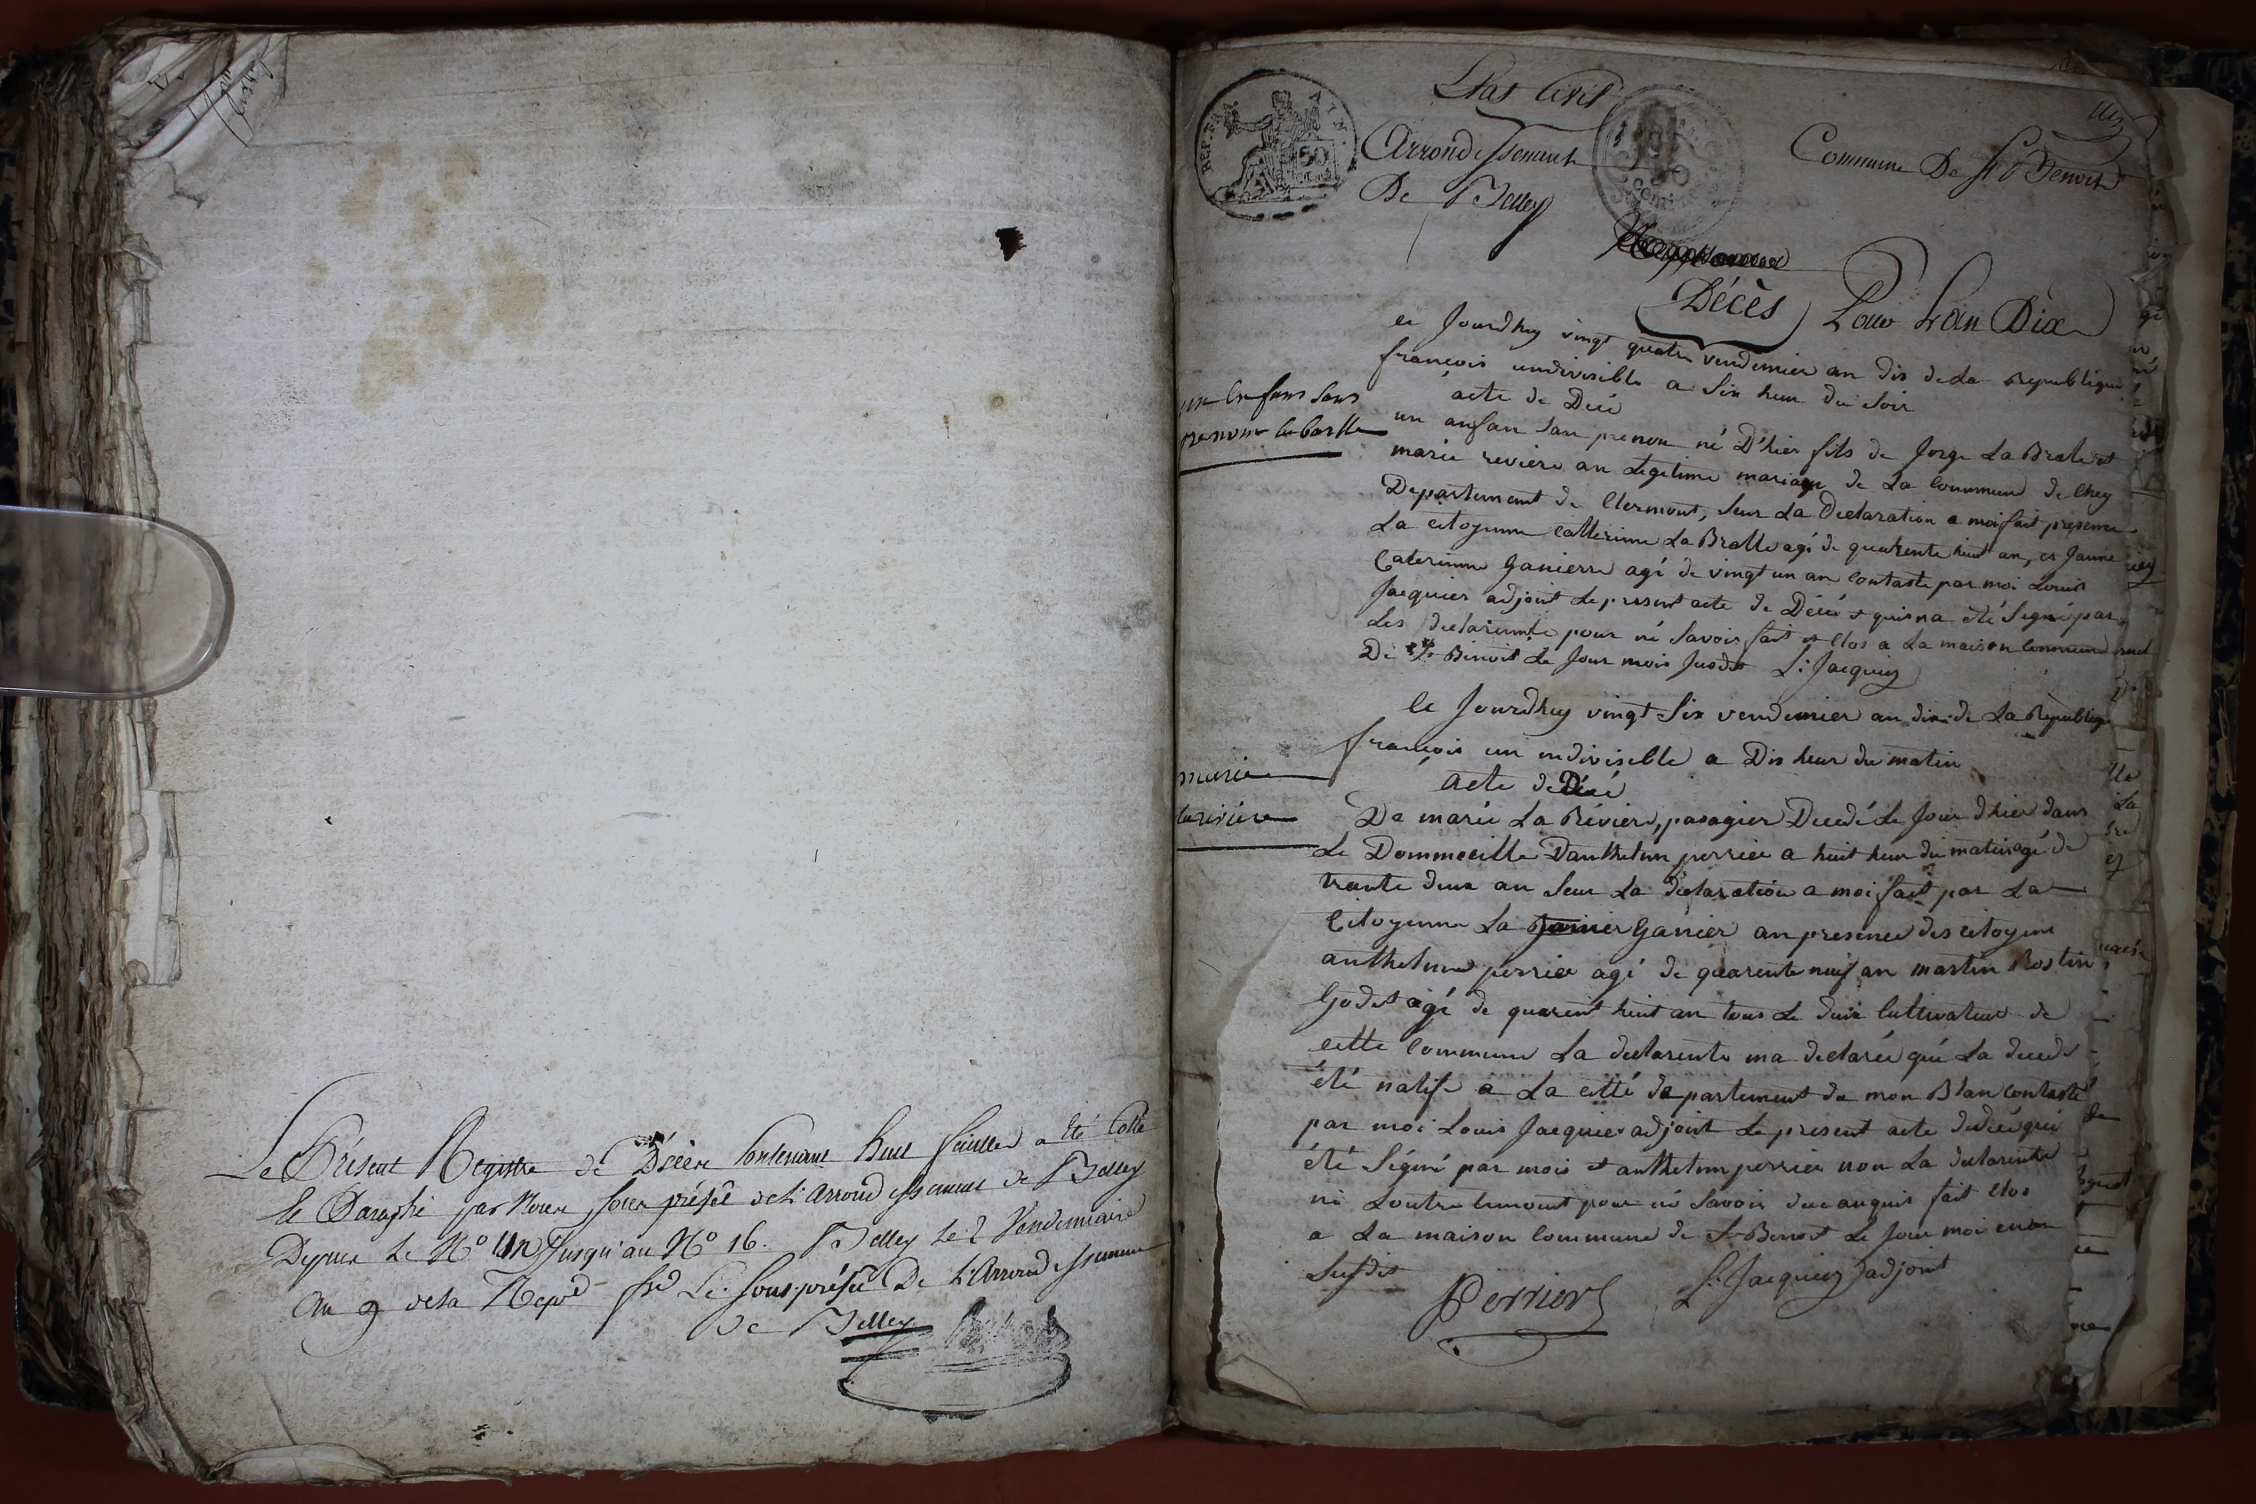 Le Présent Registre de Décès Contenant huit feuilles a été Cotté
le Paraphé par Nous sous préfet de L'arrondissement de Belley
Depuis le N° Un Jusqu'au N° 16. Belley le 2 Vendemiaire
an 9 de la Repo frse Le Sous-préfet De L'arrondissement
de Belley
REP. FRA. AIN.
50
Etat Civil
Arrondissement
De Belley
Commune De St Benoit
Décès Pour L'an Dix
un enfans sans
prenom labralle
ce Jourdhuy vingt quatre vendemier an dix de La Republique
françois undivisible a Six heur du soir
acte de Décé
un anfan san prenom né D'hier fils de Jorge La Bralle et
marie reviere an Legitime mariage de La Commune de Chey
Departement de Clermont, seur La Declaration a moi fait presence
La citoyenne Catterinne La Bralle agé de quarente huit an, et Janne
Caterinne Ganierre agé de vingt un an Contaste par moi Louis
Jacquier adjoint Le present acte de Décé et quis na été Segné par
Les declarente pour né Savoir fait et Clos a La maison Commune
De St Benoit Le Jour mois Jusdit L: Jacquier
marie
larivière
Ce Jourdhuy vingt Six vendemier an dix de La Republique
françois un indivisible a Dix heur du matin
acte de Décé
De marie La Révière, pasagier Decedé Le Jour dhier dans
Le Dommecille Danthelme perrier a huit heur du matin agé de
trante deux an Seur La declaration a moi fait par La
Citoyenne La Ganier an presence des citoyens
anthelme perrier agé de quarente neuf an martin Rostin
Godet agé de quarent huit an tous Le deux Cultivateur de
cette Commune La declarente ma declarée qué La decedé
été natife a La cotté departement du mon Blan Contasté
par moi Louis Jacquier adjoint Le present acte dedecé qui
été Ségné par mois et anthelme perrier non La declarente
ni Loutre temoint pour né Savoir de ce anquis fait Clos
a La maison Commune de St Benoit Le Jour moi et an
Susdis
Perrier L: Jacquier adjoint